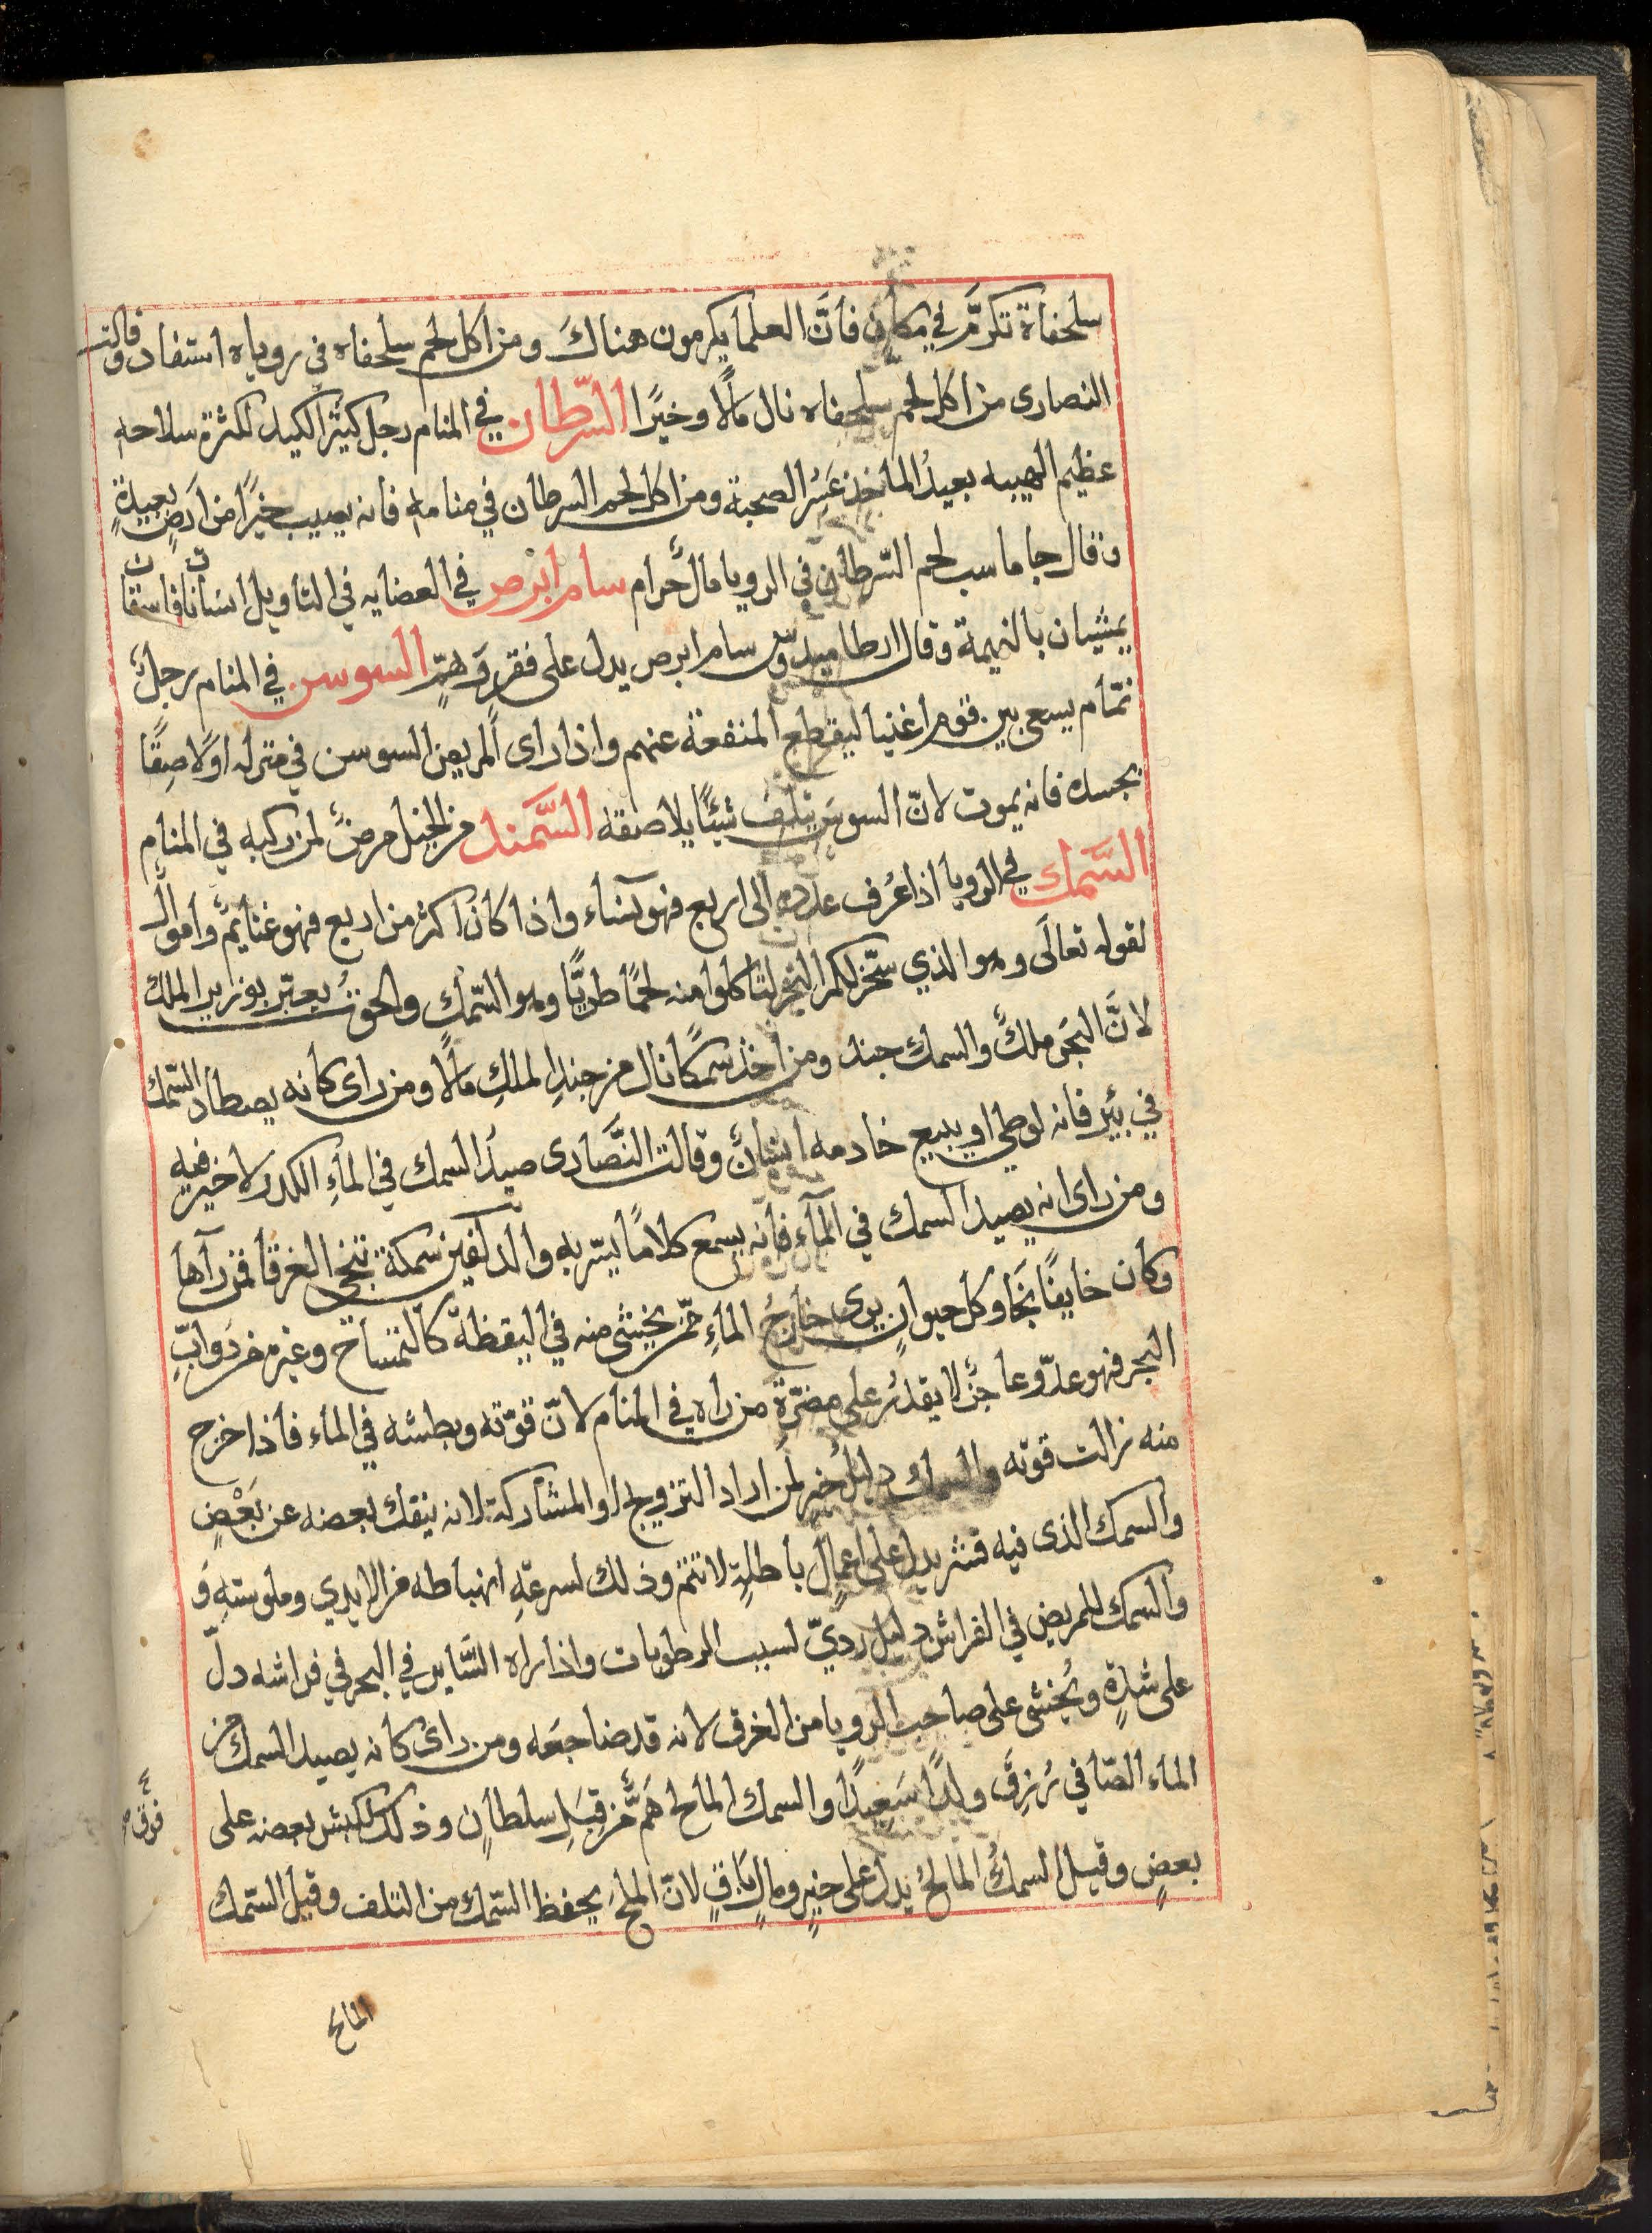 سلحفاة تكرَّم في مكانٍ فأنَّ العلما يكرمون هناكَ ومن اكل لحم سلحفاه في روياه استفاد وقالت
النصارى من اكل لحم سلحفاه نال مالًا وخيرًا السّرطان في المنام رجل كثير الكيد لكثرة سلاحه
عظيم الهيبه بعيدُ الماخذ عَسِرُ الصحبة ومن اكل لحم السرطان في منامه فانه يصيب خيرًا من ارضٍ بعيدةٍ
وقال جاماسب لحم السّرطان في الرويا مالٌ حرام سام ابرص في العضايه في التأويل انسانان فاسقان
يمشيان بالنميمة وقال ارطاميدوس سام ابرص يدل على فقرٍ وَهمٍّ السوس في المنام رجلٌ
نمّام يسعى بين قوم اغنيا ليقطع المنفعة عنهم واذا راى المريض السوس في منزله او لاصِقًا
بجسده فانه يموت لانّ السوسَ يتلف شيئًا يلاصقه السَّمندل من الخيل مرضٌ لمن ركبه في المنام
السَّمك في الرويا اذا عُرف عدده الى اربع فهو نساء واذا كان اكثر من اربع فهو غنايمٌ وأموالٌ
لقوله تعالَى وهو الذي سخّر لكم البَحْر لتاكلوا منه لحمًا طريًّا وهو السّمك والحوتُ يعبّر بوزير الملك
لانَّ البحَر ملكٌ والسمك جند ومن أخذ سمكًا نال من جندِ الملكِ مالًا ومن راى كانه يصطاد السّمك
في بئرٍ فانه لوطي او يبيع خادمه انسانٌ وقالت النَّصارى صيدُ السمك في الماءِ الكدر لا خير فيه
ومن راى انه يصيد السمك في المآءِ فأنه يسمع كلامًا يسّر به والدلفين سمكة تنجّي الغرقا فمن رآها
وكان خايفًا نجَا وكل حيوانٍ يرى خارجُ الماءِ ممّن يخشى منه في اليقظة كالتمساح وغيره من دَوابِّ
البحر فهو عدّو عاجزٌ لا يقدرُ على مضرّةِ من راه في المنام لانّ قوّته وبطشه في الماء فأذا خرج
منه زالت قوّته والسمكُ دليلُ خيرٍ لمن اراد التزويج او المشاركة لانه ينفك بعضه عن بَعْضٍ
والسمك الذى فيه قشر يدل على اعمالٍ باطلةٍ لا تتم وذلك لسرعتِه انهباطه من الايدي وملوستهِ وَ
والسمك للمريض في الفراش دليل رديّ لسبب الرطوبات واذا راه السَّاير في البحر في فراشه دلّ
على شدةٍ ويُخشى على صاحب الرويا من الغرق لانه قد ضاجعَه ومن راى كانه يصيد السمك من
الماء الصّافي رُزِقَ ولدًا سَعِيدًا والسمك المالح هَمٌّ من قِبَلِ سلطانٍ وذلك لكبش بعضه على
فوق
بعضٍ وقيل السمكُ المالحُ يدل على خيرٍ ومالٍ باقٍ لانّ الملحَ يحفظ السّمك من التلف وقيل السّمك
المالح